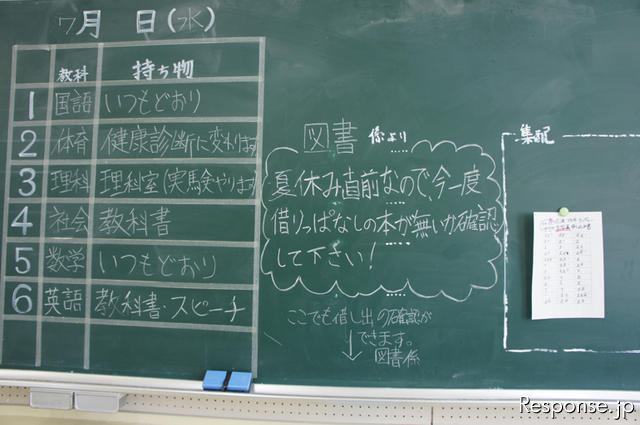 7月　日(水)
教科 持ち物
1 国語 いつもどおり
2 体育 健康診断に変わります
3 理科 理科室(実験やります)
4 社会 教科書
5 数学 いつもどおり
6 英語 教科書・スピーチ
図書 係より
夏休み直前なので、今一度
借りっぱなしの本が無いか確認
して下さい!
ここでも借し出の確認が
できます。
図書係
集配
Response.jp